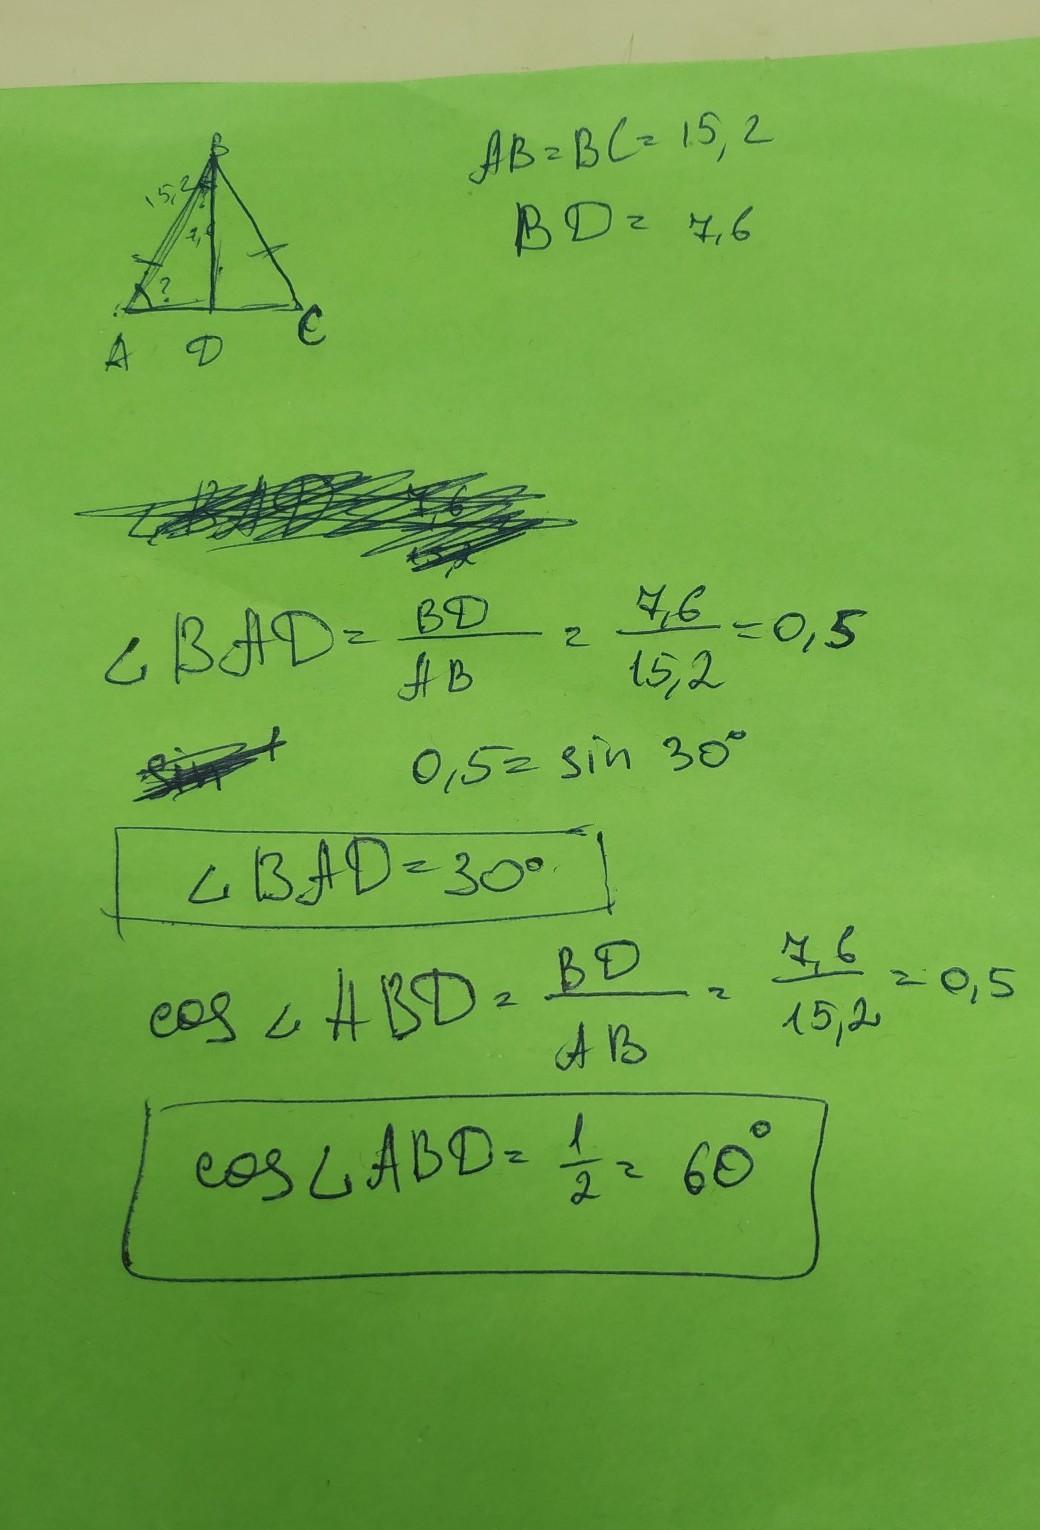 B
15,2
?
7,6
?
A D C
AB = BC = 15,2
BD = 7,6
∠BAD 7,6
15,2
∠BAD = BD/AB = 7,6/15,2 = 0,5
sin 0,5 = sin 30°
∠BAD = 30°
cos ∠ABD = BD/AB = 7,6/15,2 = 0,5
cos ∠ABD = 1/2 = 60°